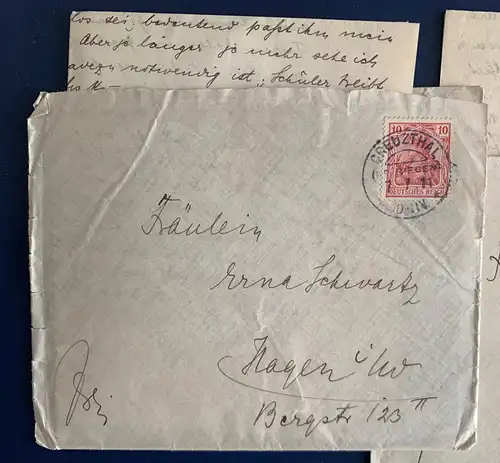 los sei, bedeutend paßt ihm mein
Aber je länger je mehr sehe ich
notwendig ist, Schüler bleibt
10 10
DEUTSCHES REICH
CREUZTHAL
SIEGEN
Fräulein
Erna Schwartz
Hagen i/W
Bergstr 123 II